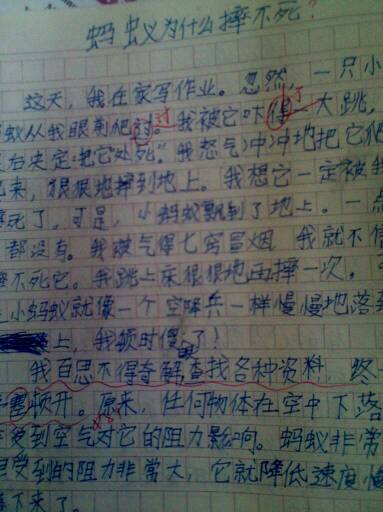 蚂蚁为什么摔不死?
这天,我在家写作业。忽然,一只小
蚁从我眼前爬过。我被它吓了一大跳,
后决定把它“处死”。我怒气冲冲地把它
来,狠狠地摔到地上。我想它一定被我
死了,可是,小蚂蚁飘到了地上。一点
都没有。我被气得七窍冒烟 我就不信
不死它。我跳上床狠狠地再摔一次。
小蚂蚁就像一个空降兵一样慢慢地落到
上,我顿时傻了!
我百思不得奇解查找各种资料,终
塞顿开。原来,任何物体在空中下落
多到空气对它的阻力影响。蚂蚁非常
受到的阻力非常大,它就降低速度慢
下来了。